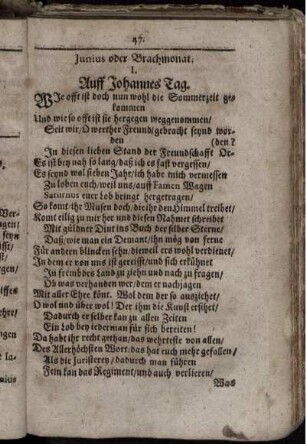 47.
Junius oder Brachmonat.
I.
Auff Johannes Tag.
WJe offt ist doch nun wohl die Sommerzeit ge-
kommen
Und wie so offt ist sie hergegen weggenommen/
Seit wir/ O werther Freund/ gebracht seynd wor-
den (den?
In diesen lieben Stand der Freundschafft Or-
Es ist bey nah so lang/ daß ich es fast vergessen/
Es seynd wol sieben Jahr/ ich habe mich vermessen
Zu loben euch/ weil uns/ auff Famen Wagen
Saturnus euer Lob bringt hergetragen/
So komt ihr Musen doch/ die ihr den Himmel treibet/
Komt eilig zu mir her und diesen Nahmen schreibet
Mit güldner Dint ins Buch der silber Sterne/
Daß/ wie man ein Demant/ ihn mög von ferne
Für andern blincken sehn/ dieweil ers wohl verdienet/
In dem er von uns ist gereist/ und sich erkühnet
In frembdes Land zu ziehn und nach zu fragen/
Ob was verhanden wer/ dem er nachjagen
Mit aller Ehre könt. Wol dem der so ausziehet/
O wol und über wol! Der ihm die Kunst ersihet/
Dadurch er selber kan zu allen Zeiten
Ein Lob bey iederman für sich bereiten!
Da habt ihr recht gethan/ das wehrteste von allen/
Des Allerhöchsten Wort/ das hat euch mehr gefallen/
Als die Juristerey/ dadurch man führen
Fein kan das Regiment/ und auch verlieren/
Was